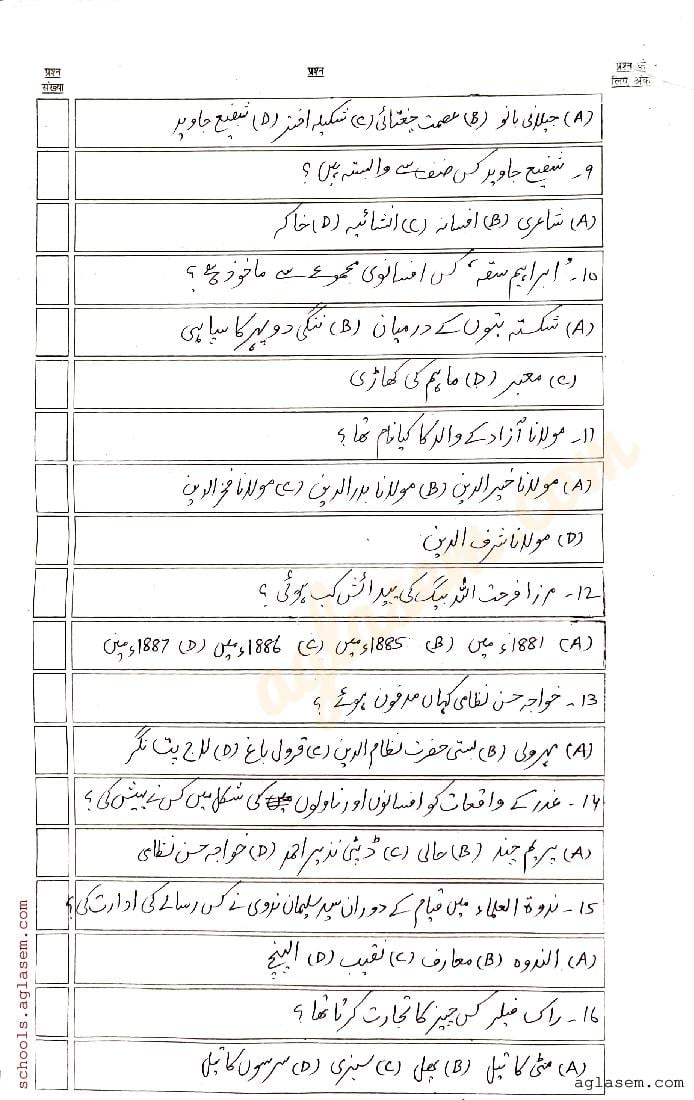 प्रश्न संख्या
प्रश्न
प्रश्न के लिए अंक
(A) جیلانی بانو (B) عصمت چغتائی (C) شکیلہ اختر (D) شفیع جاوید
9۔ شفیع جاوید کس صنف سے وابستہ ہیں؟
(A) شاعری (B) افسانہ (C) انشائیہ (D) خاکہ
10۔ ’ابراہیم سقہ‘ کس افسانوی مجموعے سے ماخوذ ہے؟
(A) شکستہ بتوں کے درمیان (B) ننگی دوپہر کا سپاہی
(C) معبر (D) ماہم کی کھاڑی
11۔ مولانا آزاد کے والد کا کیا نام تھا؟
(A) مولانا خیرالدین (B) مولانا بدرالدین (C) مولانا فخرالدین
(D) مولانا شرف الدین
12۔ مرزا فرحت اللہ بیگ کی پیدائش کب ہوئی؟
(A) 1881ء میں (B) 1885ء میں (C) 1886ء میں (D) 1887ء میں
13۔ خواجہ حسن نظامی کہاں مدفون ہوئے؟
(A) مہرولی (B) بستی حضرت نظام الدین (C) قرول باغ (D) لاج پت نگر
14۔ غدر کے واقعات کو افسانوں اور ناولوں کی شکل میں کس نے پیش کی؟
(A) پریم چند (B) حالی (C) ڈپٹی نذیر احمد (D) خواجہ حسن نظامی
15۔ ندوۃ العلماء میں قیام کے دوران سید سلیمان ندوی نے کس رسالے کی ادارت کی؟
(A) الندوہ (B) معارف (C) نقیب (D) الپنچ
16۔ راک فیلر کس چیز کا تجارت کرتا تھا؟
(A) مٹی کا تیل (B) پھل (C) سبزی (D) سرسوں کا تیل
schools.aglasem.com
aglasem.com
aglasem.com